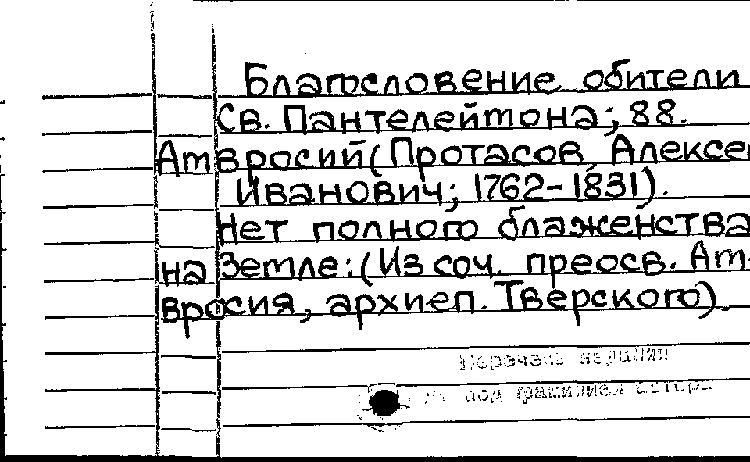 Благословение обители
Св. Пантелеймона; 88.
Амвросий (Протасов, Алексе
Иванович; 1762-1831).
Нет полного блаженства
на Земле: (Из соч. преосв. Ам-
вросия, архиеп. Тверского).